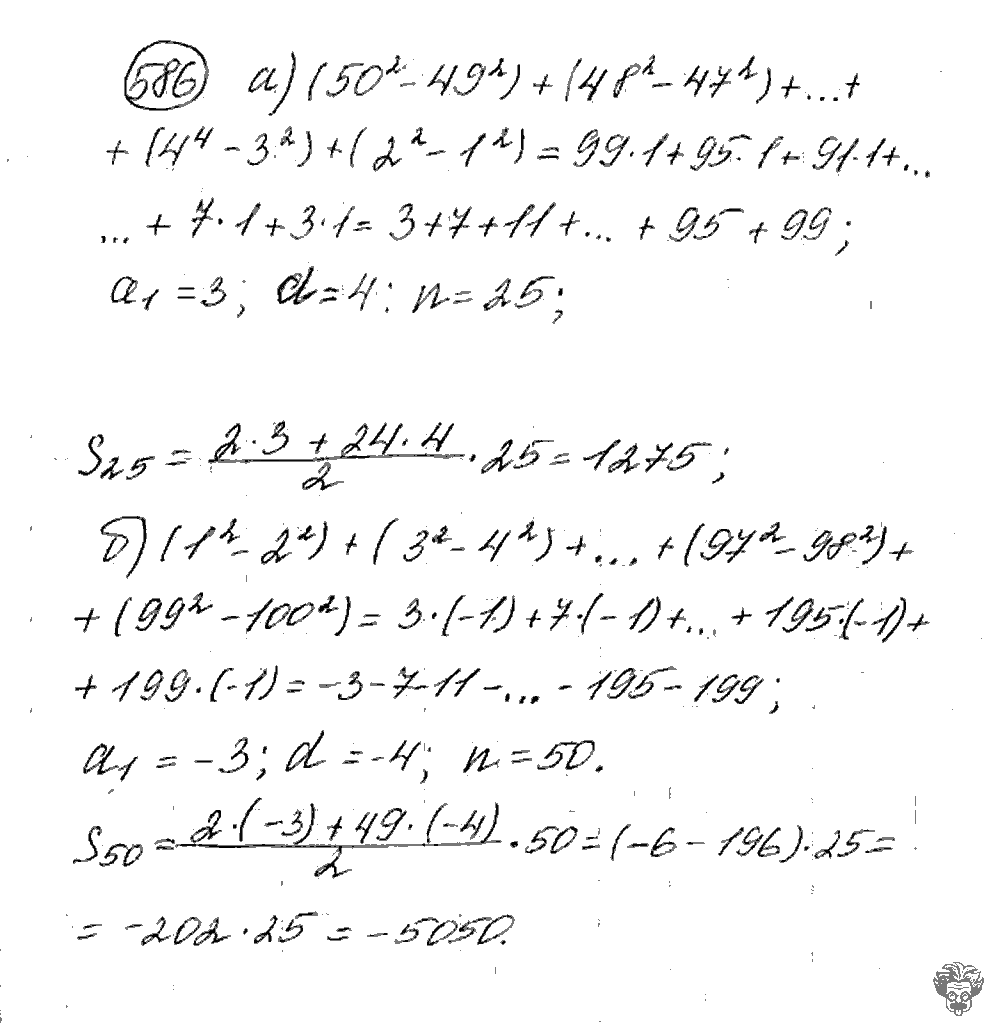 586 а) (50² - 49²) + (48² - 47²) + ... +
+ (4⁴ - 3²) + (2² - 1²) = 99·1 + 95·1 + 91·1 + ...
... + 7·1 + 3·1 = 3 + 7 + 11 + ... + 95 + 99;
a₁ = 3; d = 4; n = 25;
S₂₅ = (2·3 + 24·4)/2 · 25 = 1275;
б) (1² - 2²) + (3² - 4²) + ... + (97² - 98²) +
+ (99² - 100²) = 3·(-1) + 7·(-1) + ... + 195·(-1) +
+ 199·(-1) = -3 - 7 - 11 - ... - 195 - 199;
a₁ = -3; d = -4; n = 50.
S₅₀ = (2·(-3) + 49·(-4))/2 · 50 = (-6 - 196)·25 =
= -202·25 = -5050.